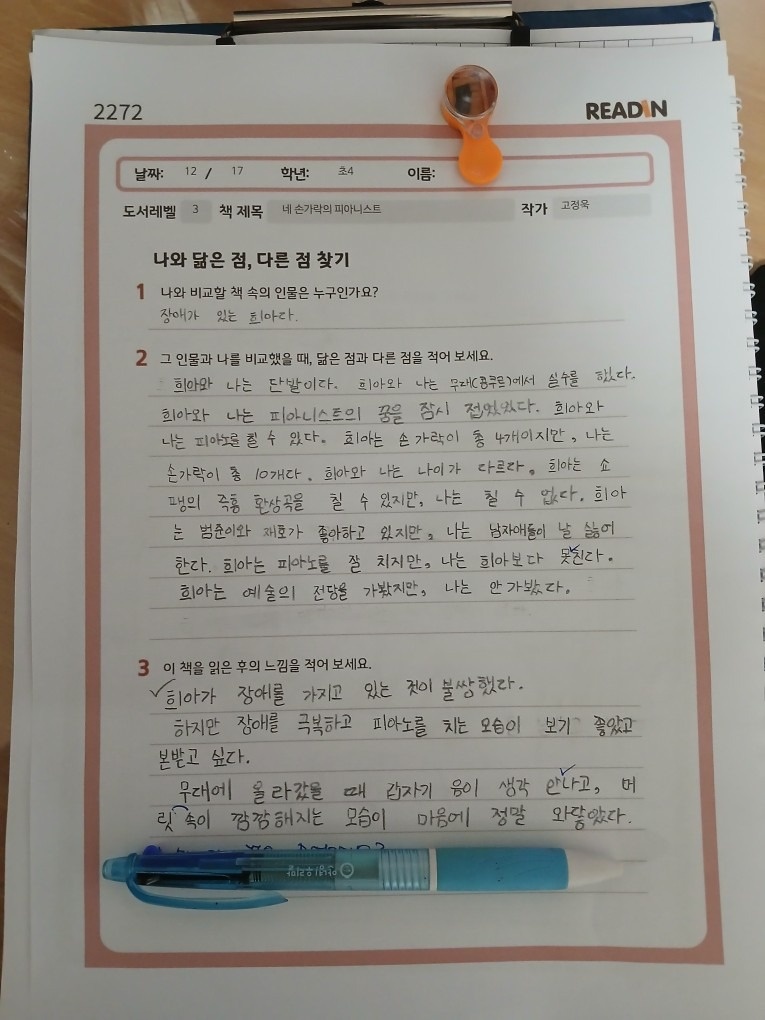 2272
READIN
날짜: 12 / 17 학년: 초4 이름:
도서레벨 3 책 제목 네 손가락의 피아니스트 작가 고정욱
나와 닮은 점, 다른 점 찾기
1 나와 비교할 책 속의 인물은 누구인가요?
장애가 있는 희아다.
2 그 인물과 나를 비교했을 때, 닮은 점과 다른 점을 적어 보세요.
희아와 나는 단발이다. 희아와 나는 무대(콩쿠르)에서 실수를 했다.
희아와 나는 피아니스트의 꿈을 잠시 접었었다. 희아와
나는 피아노를 칠 수 있다. 희아는 손가락이 총 4개이지만, 나는
손가락이 총 10개다. 희아와 나는 나이가 다르다. 희아는 쇼
팽의 즉흥 환상곡을 칠 수 있지만, 나는 칠 수 없다. 희아
는 범준이와 재호가 좋아하고 있지만, 나는 남자애들이 날 싫어
한다. 희아는 피아노를 잘 치지만, 나는 희아보다 못친다.
희아는 예술의 전당을 가봤지만, 나는 안 가봤다.
3 이 책을 읽은 후의 느낌을 적어 보세요.
희아가 장애를 가지고 있는 것이 불쌍했다.
하지만 장애를 극복하고 피아노를 치는 모습이 보기 좋았고
본받고 싶다.
무대에 올라갔을 때 갑자기 음이 생각 안나고, 머
릿속이 깜깜해지는 모습이 마음에 정말 와닿았다.